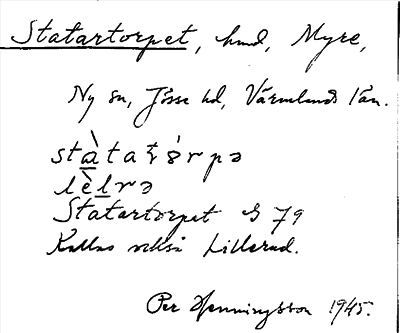 Statartorpet, hmd, Myre,
Ny sn, Jösse hd, Värmlands län.
Statartorpet G 79
Kallas också Lillerud.
Per Henningsson 1945.